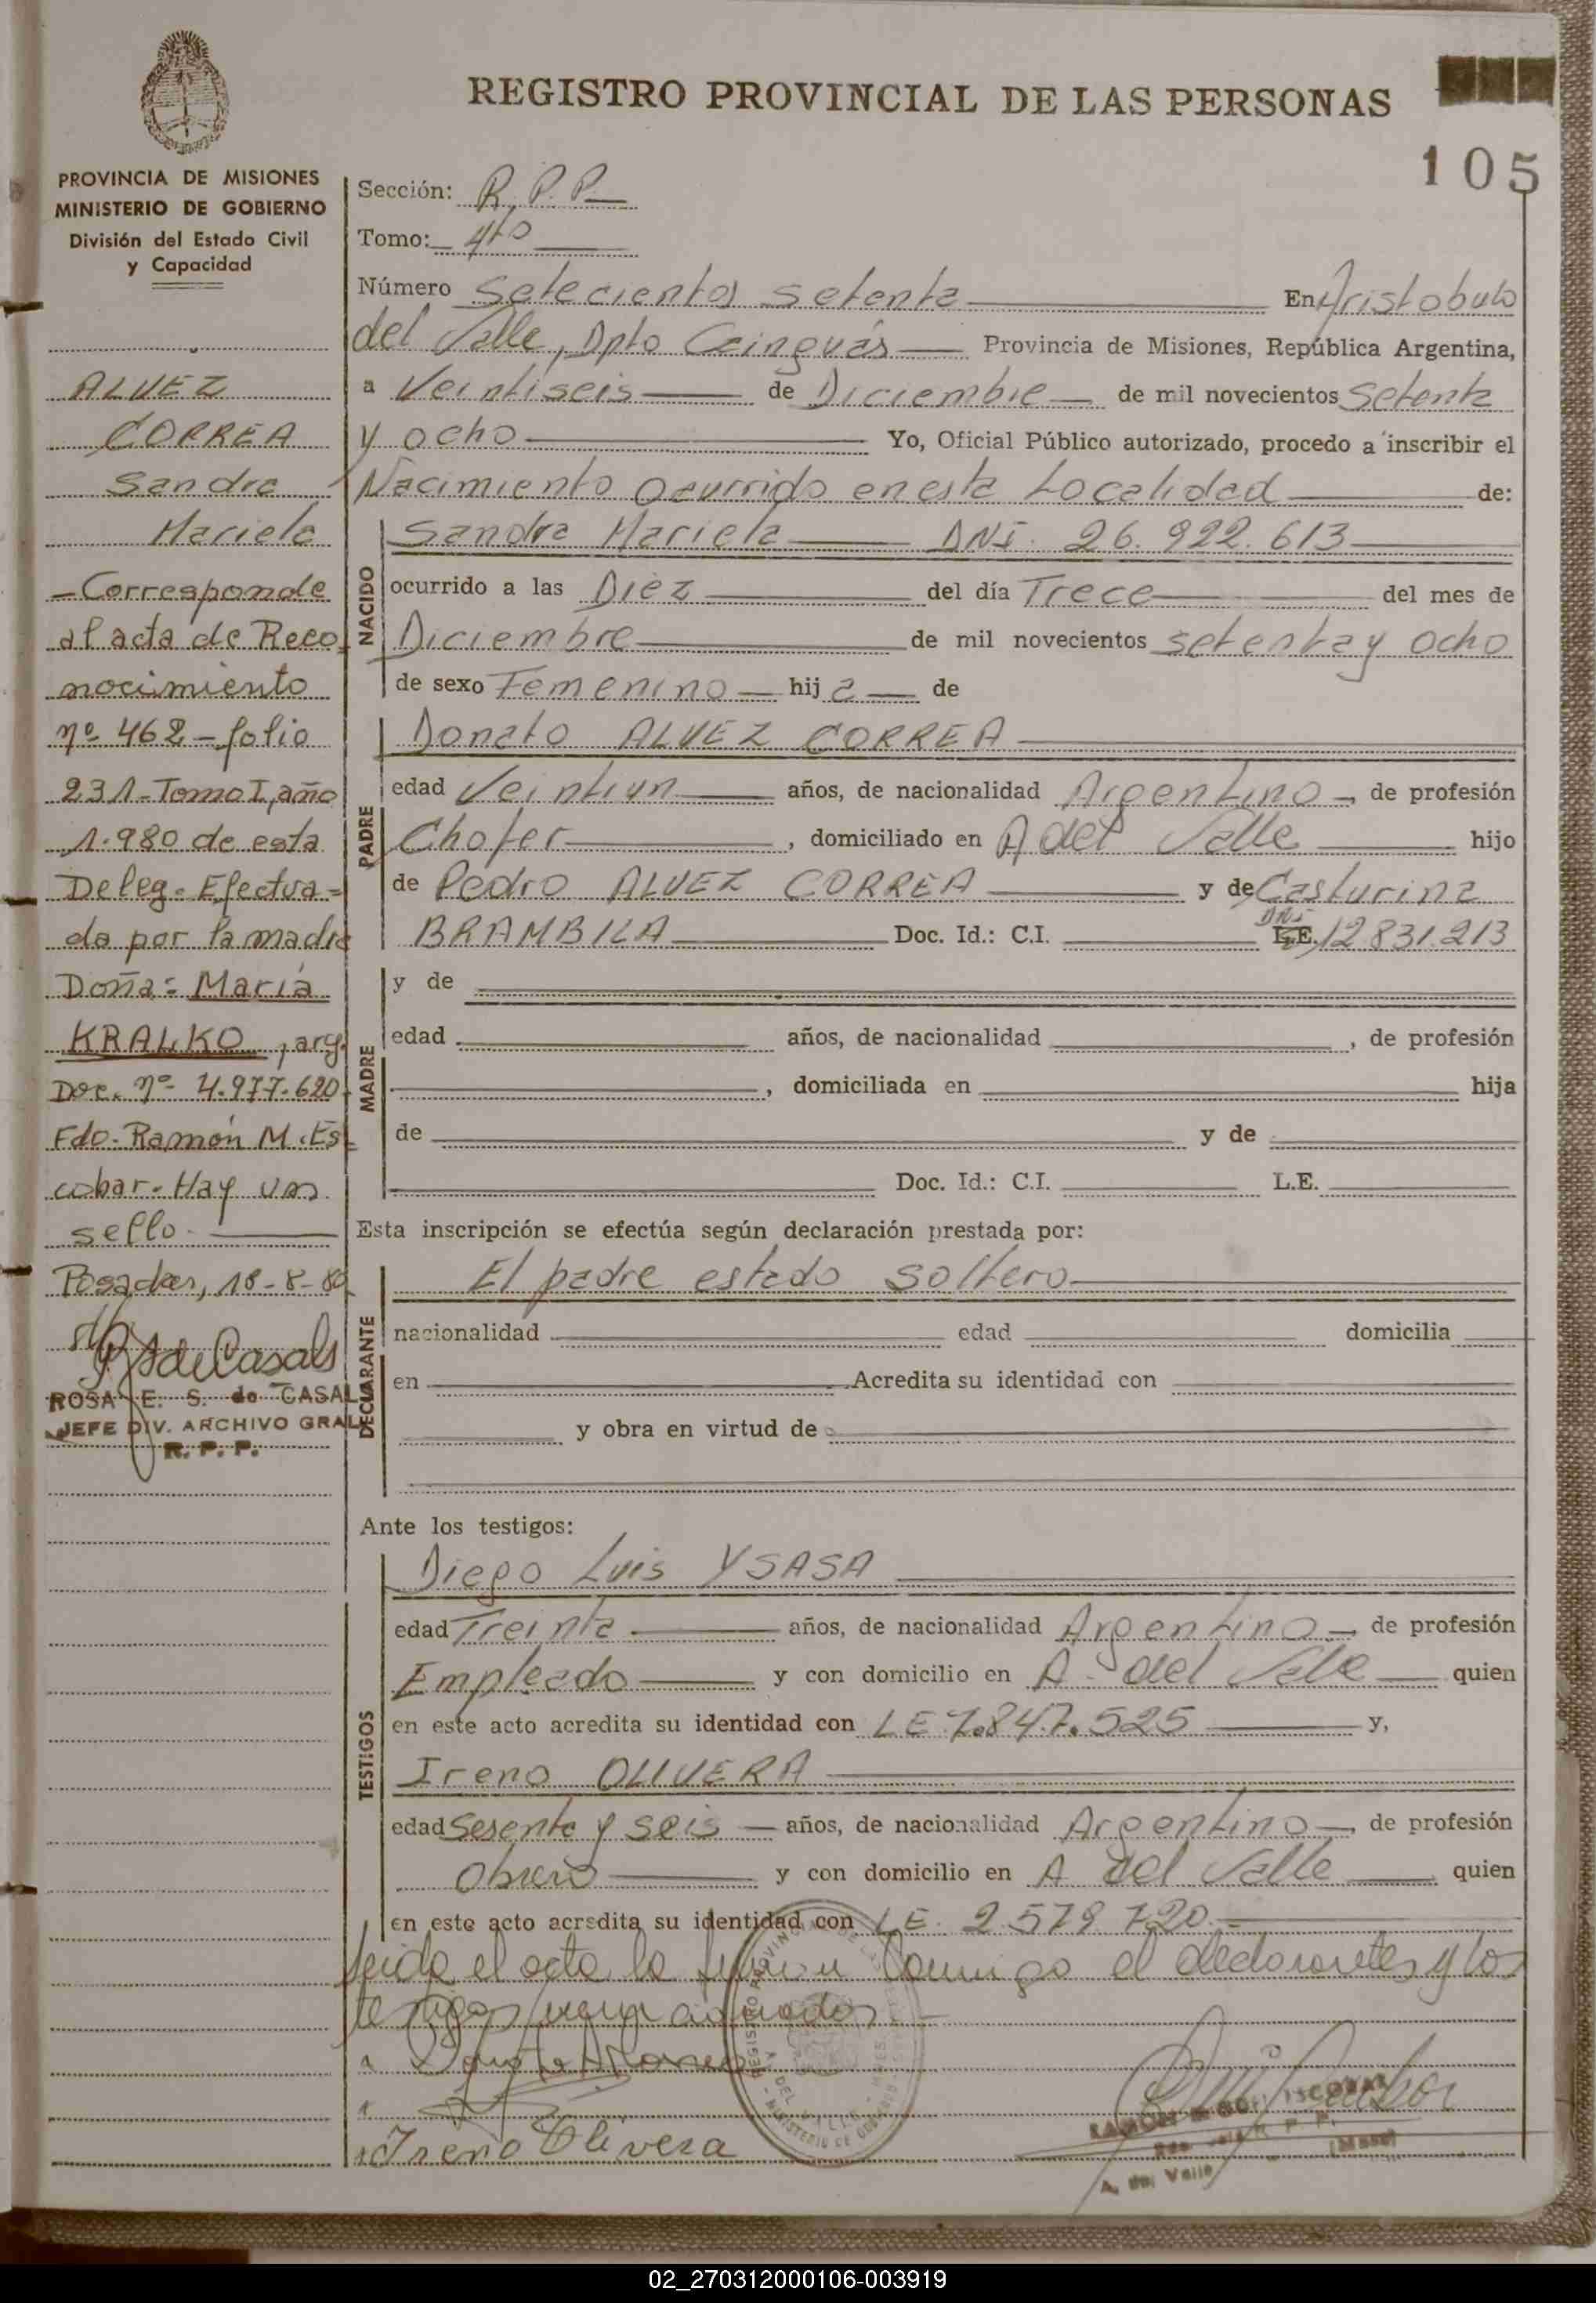 REGISTRO PROVINCIAL DE LAS PERSONAS
105
PROVINCIA DE MISIONES
MINISTERIO DE GOBIERNO
División del Estado Civil
y Capacidad
ALVEZ
CORREA
Sandra
Mariela
- Corresponde
al acta de Reco
nocimiento
nº 462 - folio
231 - Tomo I, año
1.980 de esta
Deleg. Efectua=
da por la madre
Doña: María
KRALKO, arg.
Doc. nº 4.977.620
Fdo. Ramón M. Es
cobar - Hay un
sello.
Posadas, 18-8-80
ROSA E. S. de CASALS
JEFE DIV. ARCHIVO GRAL
R. P. P.
Sección: R.P.P.
Tomo: 4to
Número Setecientos setenta En Aristobulo
del Valle, Dpto Cainguás Provincia de Misiones, República Argentina,
a Veintiseis de Diciembre de mil novecientos Setenta
y ocho Yo, Oficial Público autorizado, procedo a inscribir el
Nacimiento ocurrido en esta Localidad de:
NACIDO
Sandra Mariela DNI. 26.922.613
ocurrido a las Diez del día Trece del mes de
Diciembre de mil novecientos setenta y ocho
de sexo Femenino hija de
PADRE
Donato ALVEZ CORREA
edad Veintiun años, de nacionalidad Argentino, de profesión
Chofer, domiciliado en A del Valle hijo
de Pedro ALVEZ CORREA y de Casturina
BRAMBILA Doc. Id.: C.I. DNI L.E. 12831.213
MADRE
y de
edad años, de nacionalidad , de profesión
, domiciliada en hija
de y de
Doc. Id.: C.I. L.E.
Esta inscripción se efectúa según declaración prestada por:
DECLARANTE
El padre estado soltero
nacionalidad edad domicilia
en Acredita su identidad con
y obra en virtud de
Ante los testigos:
TESTIGOS
Diego Luis YSASA
edad Treinta años, de nacionalidad Argentino, de profesión
Empleado y con domicilio en A. del Valle quien
en este acto acredita su identidad con LE 7.847.525 y,
Ireno OLIVERA
edad Sesenta y seis años, de nacionalidad Argentino, de profesión
Obrero y con domicilio en A del Valle quien
en este acto acredita su identidad con LE. 2.579.720.-
leida el acta la firman conmigo el declarante y los
testigos
Ireno Olivera
A. del Valle
02_270312000106-003919